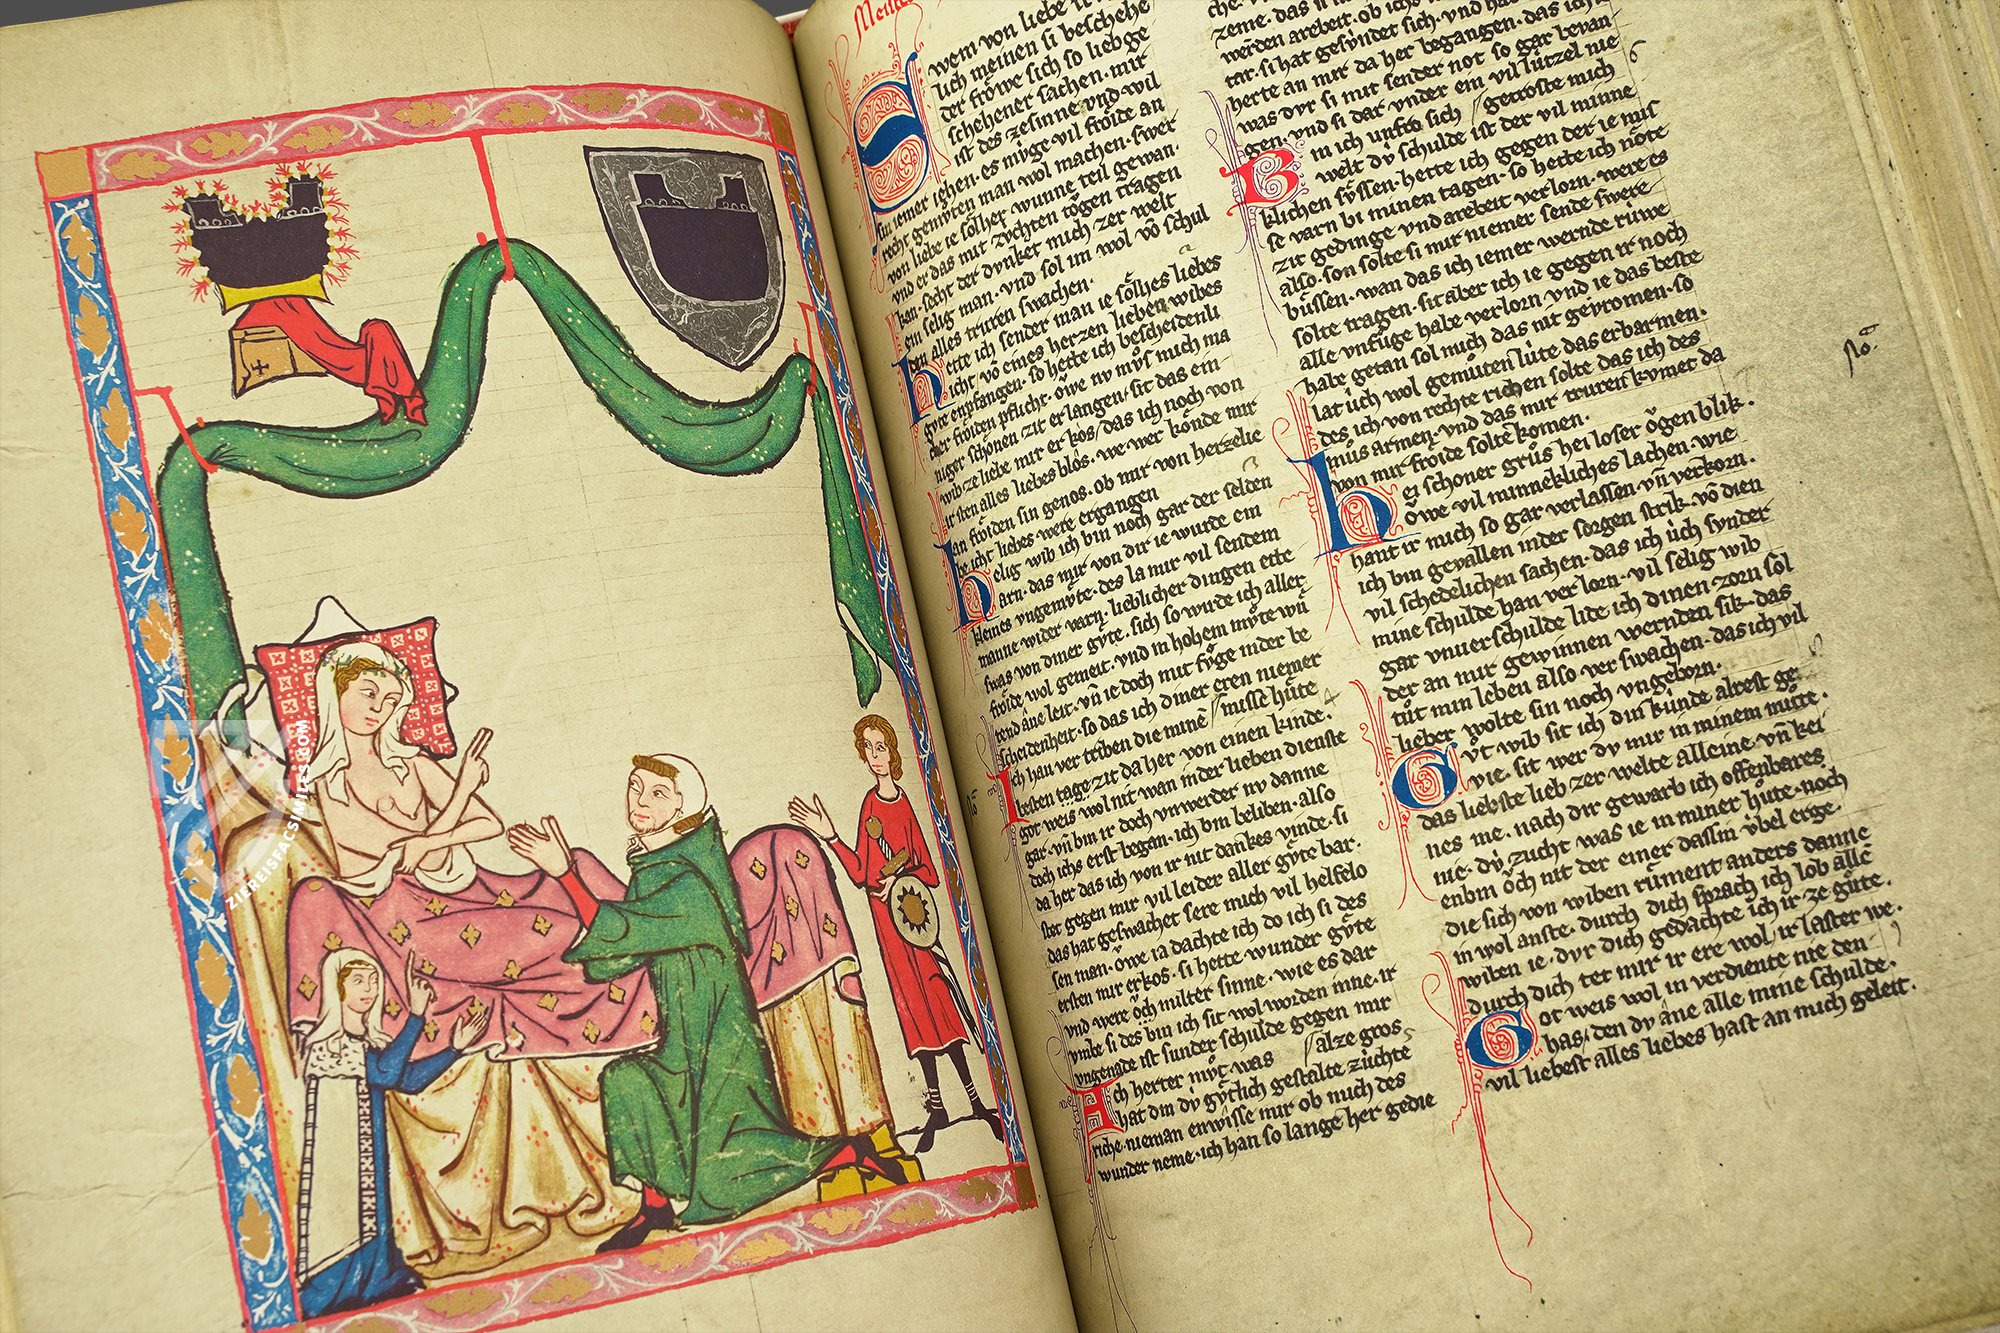 ZIEREISFACSIMILES.COM
wem von liebe
lich meinen si beschehe
der fröwe sich so lieb ge
schehener sachen. mir
ist des ze sinne. vnd wil
iemer iehen. es müge vil fröide an
recht gemüten man wol machen. swer
von liebe ie sölher wunne teil gewan.
vnd er das mit zvchten tögen tragen
kan. secht der dvnket mich zer welt
ein selig man. vnd sol im wol vö schul
den alles truren swachen.
hette ich sender man ie sölhes liebes
icht vö eines herzen lieben wibes
gvte enpfangen. so hette ich bescheidenli
cher fröiden pflicht. öwe nv mvs much ma
niger schönen zit er langen. sit das ein
wib ze liebe mir er kos. das ich noch von
ir sten alles liebes blos. we wer könde mir
an fröiden sin genos. ob mir von herzelie
be icht liebes were ergangen
helig wib ich bin noch gar der selden
arn. das mir von dir ie wurde ein
kleines vngemvte. des la mir vil sendem
manne wider varn. lieblicher dingen ette
swas von diner gvte. sich so wurde ich aller
fröide wol gemeit. vnd in hohem mvte wn
rend ane leit. vn ie doch mit fvge inder be
scheidenheit. so das ich diner eren niemer
misse hüte
Ich han ver triben die mine
besten tage zit da her von einen kinde.
got weis wol nit wan inder lieben dienste
gar. vn bin ir doch vnwerder nv danne
doch ichs erst began. ich bin beliben. also
da her das ich von ir nit dankes vinde. si
ster gegen mir vil leider aller gvte bar.
das hat geswachet sere much vil helfelo
sen man. öwe ia dachte ich do ich si des
ersten mir erkos. si hette wunder gvte
vnd were öch milter sinne. wie es dar
vmbe si des bin ich sit wol worden inne. ir
vngenade ist sunder schulde gegen mir
alze gros
Ich herter mvt was
hat din dv gvtlich gestalte zuchte
riche. nieman enwisse mir ob much des
wunder neme. ich han so lange her gedie
zeme. das
werden arebeit. ob ich
tar. si hat gesvndet sich. vnd
herte an mir da her begangen. das ich
was dvr si mit sender not so gar bevan
gen. vnd si dar vnder ein vil lützel nie
getroste mich
Bin ich vnfro sich
welt dv schulde ist der vil minne
klichen syssen. hette ich gegen der ie mis
se varn bi minen tagen. so hette ich nöte
zit gedinge vnd arebeit verlorn. were es
also. son solte si mir niemer sende swere
büssen. wan das ich iemer wernde rüwe
solte tragen. sit aber ich ie gegen ir noch
alle vnfüge habe verlorn vnd ie das beste
habe getan sol much das nit gevromen. so
lat üch wol gemüten lüte das erbarmen.
des ich von rechte richen solte das ich des
müs armen. vnd das mir truren kvmet da
von mir fröide solte komen.
hei schoner grüs hei loser ögen blik.
öwe vil minnekliches lachen. wie
hant ir much so gar verlassen. vn verkorn.
ich bin gevallen inder sorgen strik. vö dien
vil schedelichen sachen. das ich üch svnder
mine schulde han ver lorn. vil selig wib
gar vnuerschulde lide ich dinen zorn sol
der an mir gewinnen wernden sik. das
tüt min leben also ver swachen. das ich vil
lieber wolte sin noch vngeborn.
Gvt wib sit ich din künde alrest ge
vie. sit wer dv mir in minem mütte.
das liebste lieb zer welte alleine vn kei
nes me. nach dir gewarb ich offenbares
nie. dv zucht was ie in miner hüte. noch
enbin öch nit der einer dassin vbel erge.
die sich von wiben rüment anders danne
in wol anste. durch dich sprach ich lob alle
wiben ie. dvr dich gedachte ich ir ze güte.
durch dich tet mir ir ere wol, ir laster we.
Got weis wol in verdiente nie den
has, den dv ane alle mine schulde.
vil liebest alles liebes hast an much geleit.
No.